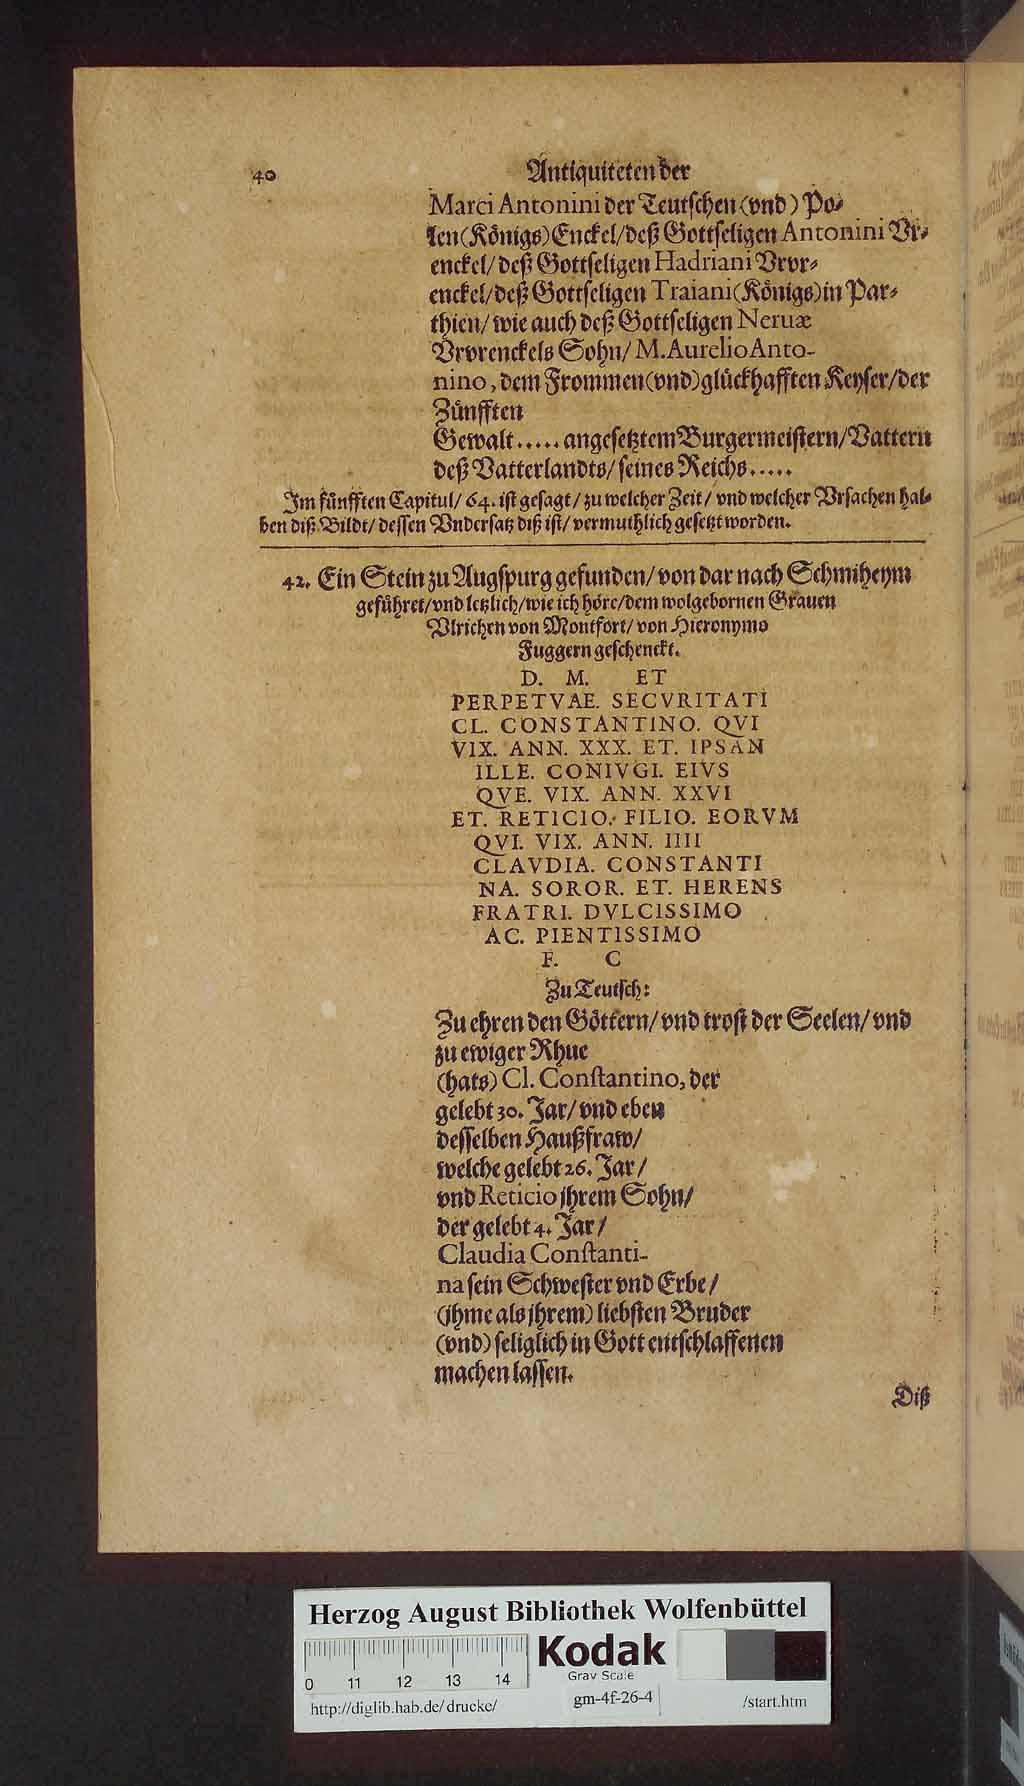 40 Antiquiteten der
Marci Antonini der Teutschen (vnd) Po-
len (Königs) Enckel / deß Gottseligen Antonini Vr-
enckel / deß Gottseligen Hadriani Vrvr-
enckel / deß Gottseligen Traiani (Königs) in Par-
thien / wie auch deß Gottseligen Neruæ
Vrvrenckels Sohn / M. Aurelio Anto-
nino, dem Frommen (vnd) glückhafften Keyser / der
Zünfften
Gewalt ..... angesetztem Burgermeistern / Vattern
deß Vatterlandts / seines Reichs .....
Im fünfften Capitul / 64. ist gesagt / zu welcher Zeit / vnd welcher Vrsachen hal-
ben diß Bildt / dessen Vndersatz diß ist / vermuthlich gesetzt worden.
42. Ein Stein zu Augspurg gefunden / von dar nach Schmiheym
geführet / vnd letzlich / wie ich höre / dem wolgebornen Grauen
Vlrichen von Montfort / von Hieronymo
Fuggern geschenckt.
D. M. ET
PERPETVAE. SECVRITATI
CL. CONSTANTINO. QVI
VIX. ANN. XXX. ET. IPSAN
ILLE. CONIVGI. EIVS
QVE. VIX. ANN. XXVI
ET. RETICIO. FILIO. EORVM
QVI. VIX. ANN. IIII
CLAVDIA. CONSTANTI
NA. SOROR. ET. HERENS
FRATRI. DVLCISSIMO
AC. PIENTISSIMO
F. C
Zu Teutsch:
Zu ehren den Göttern / vnd trost der Seelen / vnd
zu ewiger Rhue
(hats) Cl. Constantino, der
gelebt 30. Jar / vnd eben
desselben Haußfraw /
welche gelebt 26. Jar /
vnd Reticio jhrem Sohn /
der gelebt 4. Jar /
Claudia Constanti-
na sein Schwester vnd Erbe /
(jhme als jhrem) liebsten Bruder
(vnd) seliglich in Gott entschlaffenen
machen lassen.
Diß
Herzog August Bibliothek Wolfenbüttel
Kodak
Gray Scale
0 11 12 13 14
http://diglib.hab.de/drucke/ gm-4f-26-4 /start.htm